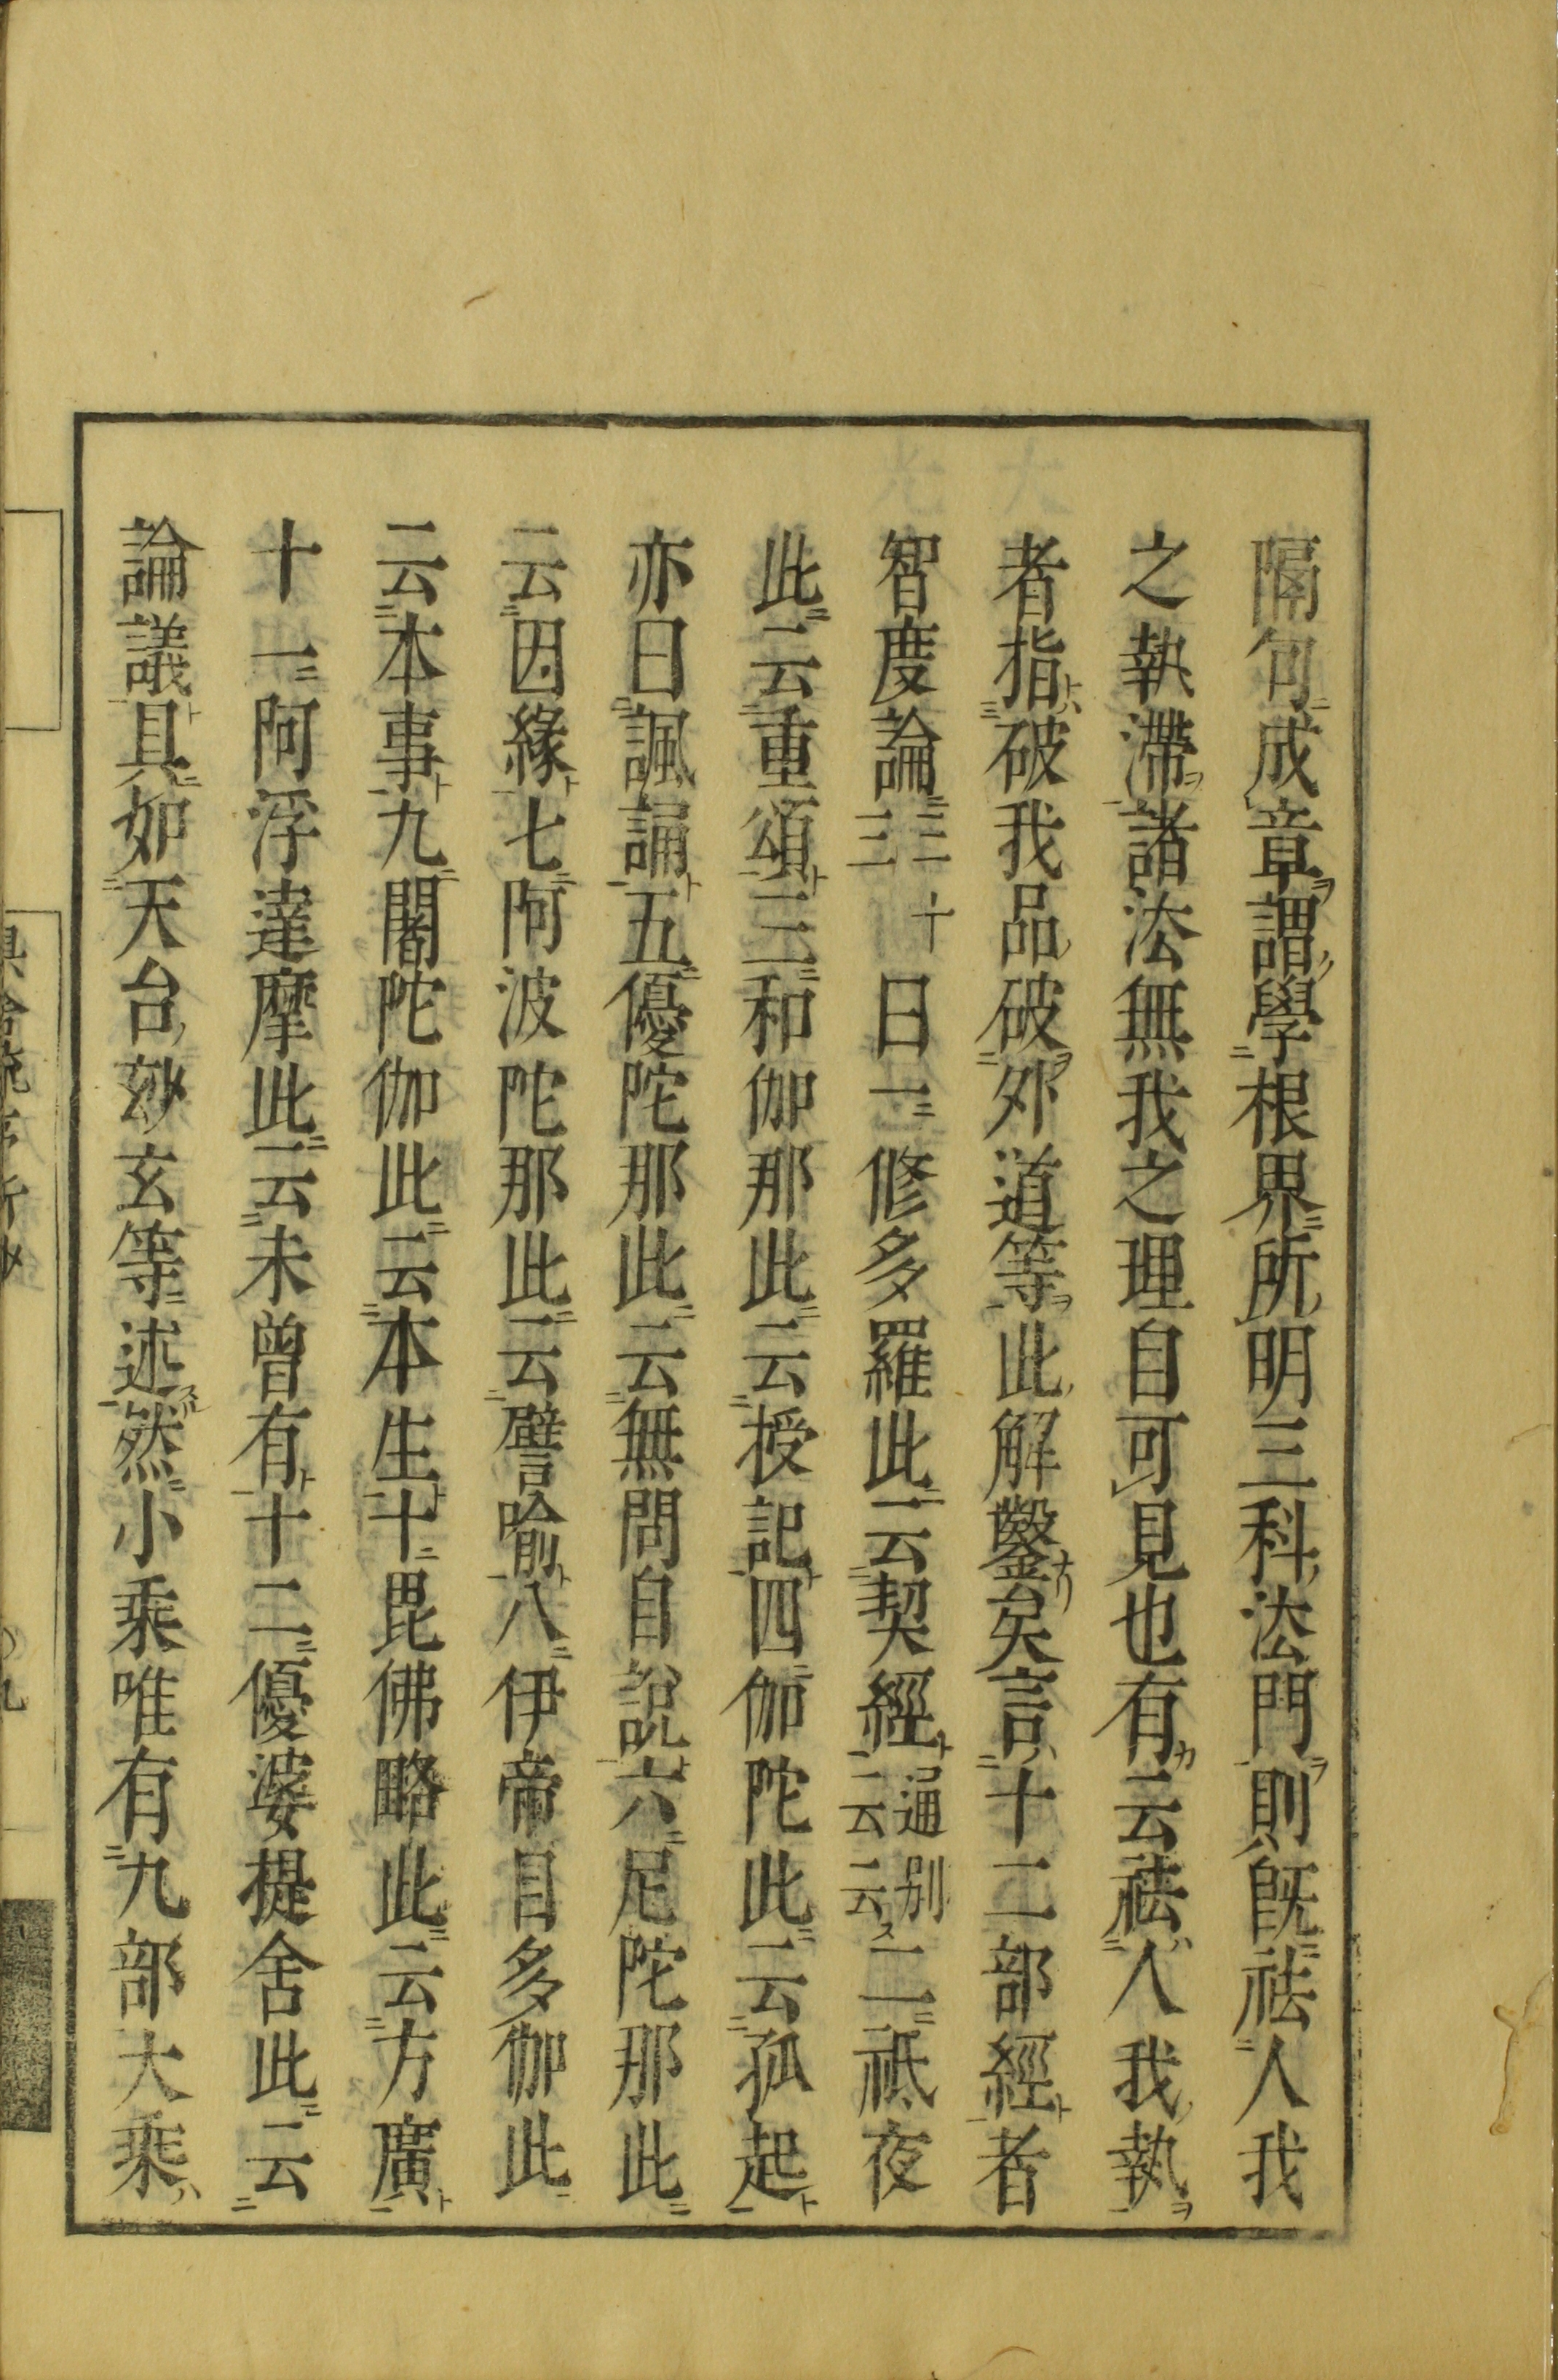 隔句成章謂學根界所明三科法門則既祛人我
之執滯諸法無我之理自可見也有云祛人我執
者指破我品破外道等此解鑿矣言十二部經者
智度論三十三曰一修多羅此云契經通別云云二祇夜
此云重頌三和伽那此云授記四伽陀此云孤起
亦曰諷誦五優陀那此云無問自說六尼陀那此
云因緣七阿波陀那此云譬喻八伊帝目多伽此
云本事九闍陀伽此云本生十毘佛略此云方廣
十一阿浮達摩此云未曾有十二優婆提舍此云
論議具如天台玅玄等述然小乘唯有九部大乘